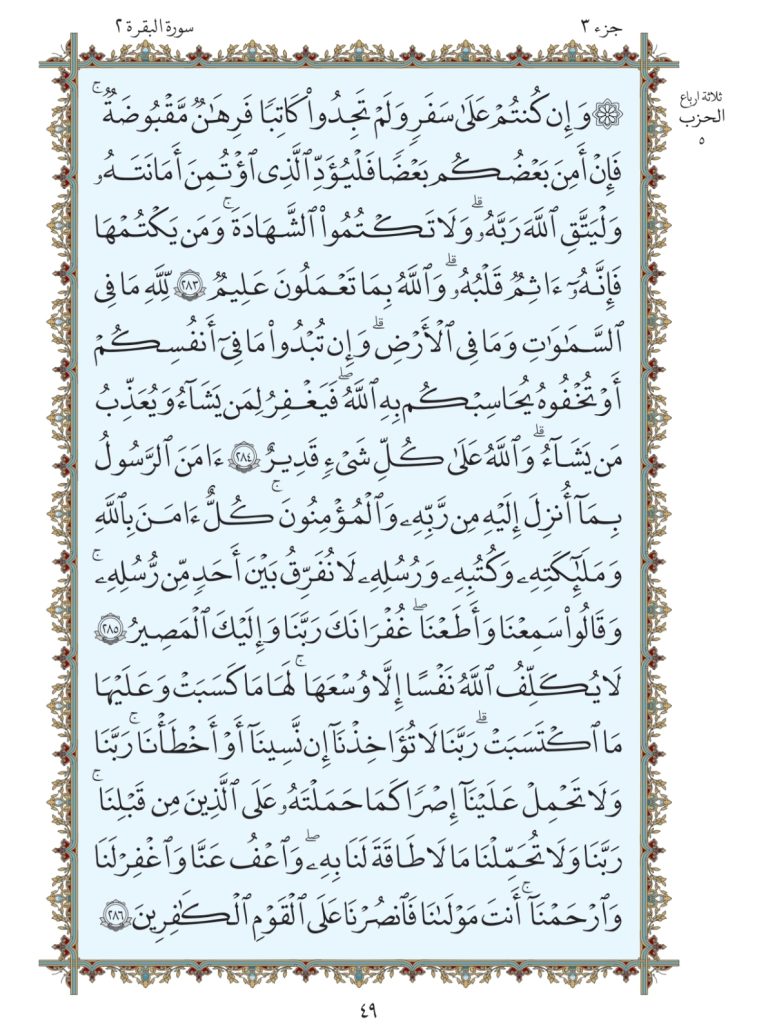 جزء ٣
سورة البقرة ٢
ثلاثة ارباع
الحزب
٥
۞ وَإِن كُنتُمْ عَلَىٰ سَفَرٍ وَلَمْ تَجِدُوا۟ كَاتِبًا فَرِهَـٰنٌ مَّقْبُوضَةٌ ۖ
فَإِنْ أَمِنَ بَعْضُكُم بَعْضًا فَلْيُؤَدِّ ٱلَّذِى ٱؤْتُمِنَ أَمَـٰنَتَهُۥ
وَلْيَتَّقِ ٱللَّهَ رَبَّهُۥ ۗ وَلَا تَكْتُمُوا۟ ٱلشَّهَـٰدَةَ ۚ وَمَن يَكْتُمْهَا
فَإِنَّهُۥٓ ءَاثِمٌ قَلْبُهُۥ ۗ وَٱللَّهُ بِمَا تَعْمَلُونَ عَلِيمٌ ٢٨٣ لِّلَّهِ مَا فِى
ٱلسَّمَـٰوَٰتِ وَمَا فِى ٱلْأَرْضِ ۗ وَإِن تُبْدُوا۟ مَا فِىٓ أَنفُسِكُمْ
أَوْ تُخْفُوهُ يُحَاسِبْكُم بِهِ ٱللَّهُ ۖ فَيَغْفِرُ لِمَن يَشَآءُ وَيُعَذِّبُ
مَن يَشَآءُ ۗ وَٱللَّهُ عَلَىٰ كُلِّ شَىْءٍ قَدِيرٌ ٢٨٤ ءَامَنَ ٱلرَّسُولُ
بِمَآ أُنزِلَ إِلَيْهِ مِن رَّبِّهِۦ وَٱلْمُؤْمِنُونَ ۚ كُلٌّ ءَامَنَ بِٱللَّهِ
وَمَلَـٰٓئِكَتِهِۦ وَكُتُبِهِۦ وَرُسُلِهِۦ لَا نُفَرِّقُ بَيْنَ أَحَدٍ مِّن رُّسُلِهِۦ ۚ
وَقَالُوا۟ سَمِعْنَا وَأَطَعْنَا ۖ غُفْرَانَكَ رَبَّنَا وَإِلَيْكَ ٱلْمَصِيرُ ٢٨٥
لَا يُكَلِّفُ ٱللَّهُ نَفْسًا إِلَّا وُسْعَهَا ۚ لَهَا مَا كَسَبَتْ وَعَلَيْهَا
مَا ٱكْتَسَبَتْ ۗ رَبَّنَا لَا تُؤَاخِذْنَآ إِن نَّسِينَآ أَوْ أَخْطَأْنَا ۚ رَبَّنَا
وَلَا تَحْمِلْ عَلَيْنَآ إِصْرًا كَمَا حَمَلْتَهُۥ عَلَى ٱلَّذِينَ مِن قَبْلِنَا ۚ
رَبَّنَا وَلَا تُحَمِّلْنَا مَا لَا طَاقَةَ لَنَا بِهِۦ ۖ وَٱعْفُ عَنَّا وَٱغْفِرْ لَنَا
وَٱرْحَمْنَآ ۚ أَنتَ مَوْلَىٰنَا فَٱنصُرْنَا عَلَى ٱلْقَوْمِ ٱلْكَـٰفِرِينَ ٢٨٦
٤٩